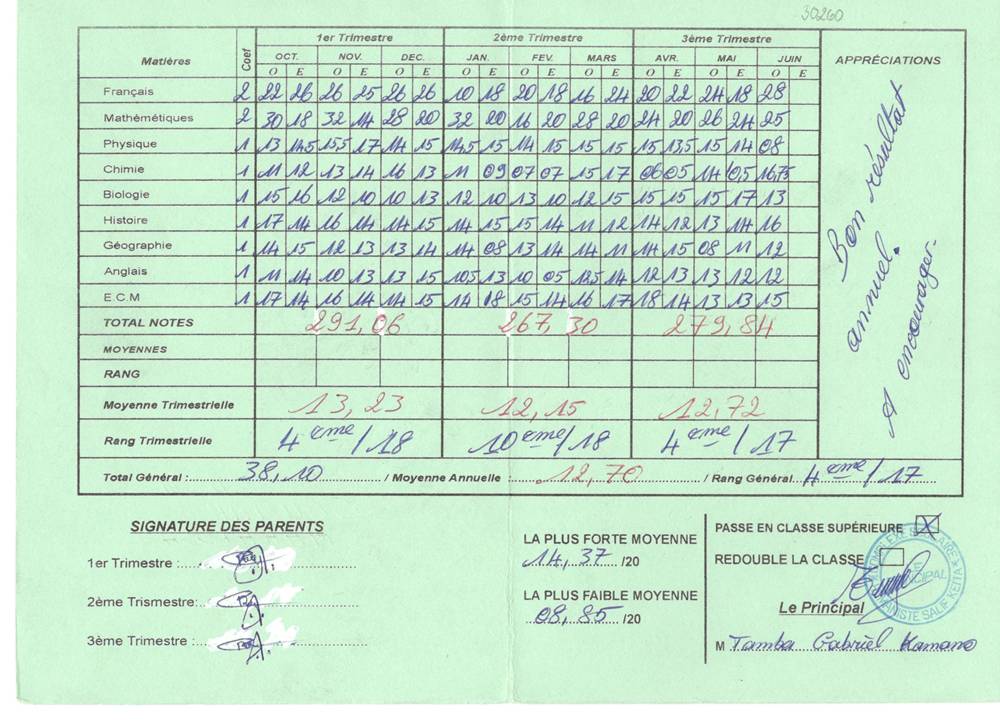 30260
1er Trimestre 2ème Trimestre 3ème Trimestre
Matières Coef OCT. NOV. DEC. JAN. FEV. MARS AVR. MAI JUIN APPRÉCIATIONS
O E O E O E O E O E O E O E O E O E
Français 2 22 26 26 25 26 26 10 18 20 18 16 24 20 22 24 18 28
Mathémétiques 2 30 18 32 14 28 20 32 20 16 20 28 20 24 20 26 24 25
Physique 1 13 14,5 15,5 17 14 15 14,5 15 14 15 15 15 15 13,5 15 14 08
Chimie 1 11 12 13 14 16 13 11 09 07 07 15 17 06 05 14 10,5 16,75
Biologie 1 15 16 12 10 10 13 12 10 13 10 12 15 15 15 15 17 13
Histoire 1 17 14 16 14 14 15 14 15 15 14 11 12 14 12 13 14 16
Géographie 1 14 15 12 13 13 14 14 08 13 14 14 11 14 15 08 11 12
Anglais 1 11 14 10 13 13 15 10,5 13 10 05 12,5 14 12 13 13 12 12
E.C.M 1 17 14 16 14 14 15 14 08 15 14 16 17 18 14 13 13 15
TOTAL NOTES 291,06 267,30 279,84
MOYENNES
RANG
Moyenne Trimestrielle 13,23 12,15 12,72
Rang Trimestrielle 4ème/18 10ème/18 4ème/17
Bon résultat
annuel.
A encourager.
Total Général : 38,10 / Moyenne Annuelle : 12,70 / Rang Général 4ème/17
SIGNATURE DES PARENTS
1er Trimestre :
2ème Trismestre:
3ème Trimestre :
LA PLUS FORTE MOYENNE
14,37 /20
LA PLUS FAIBLE MOYENNE
08,85 /20
PASSE EN CLASSE SUPÉRIEURE X
REDOUBLE LA CLASSE
Le Principal
M Tamba Gabriel Kamano